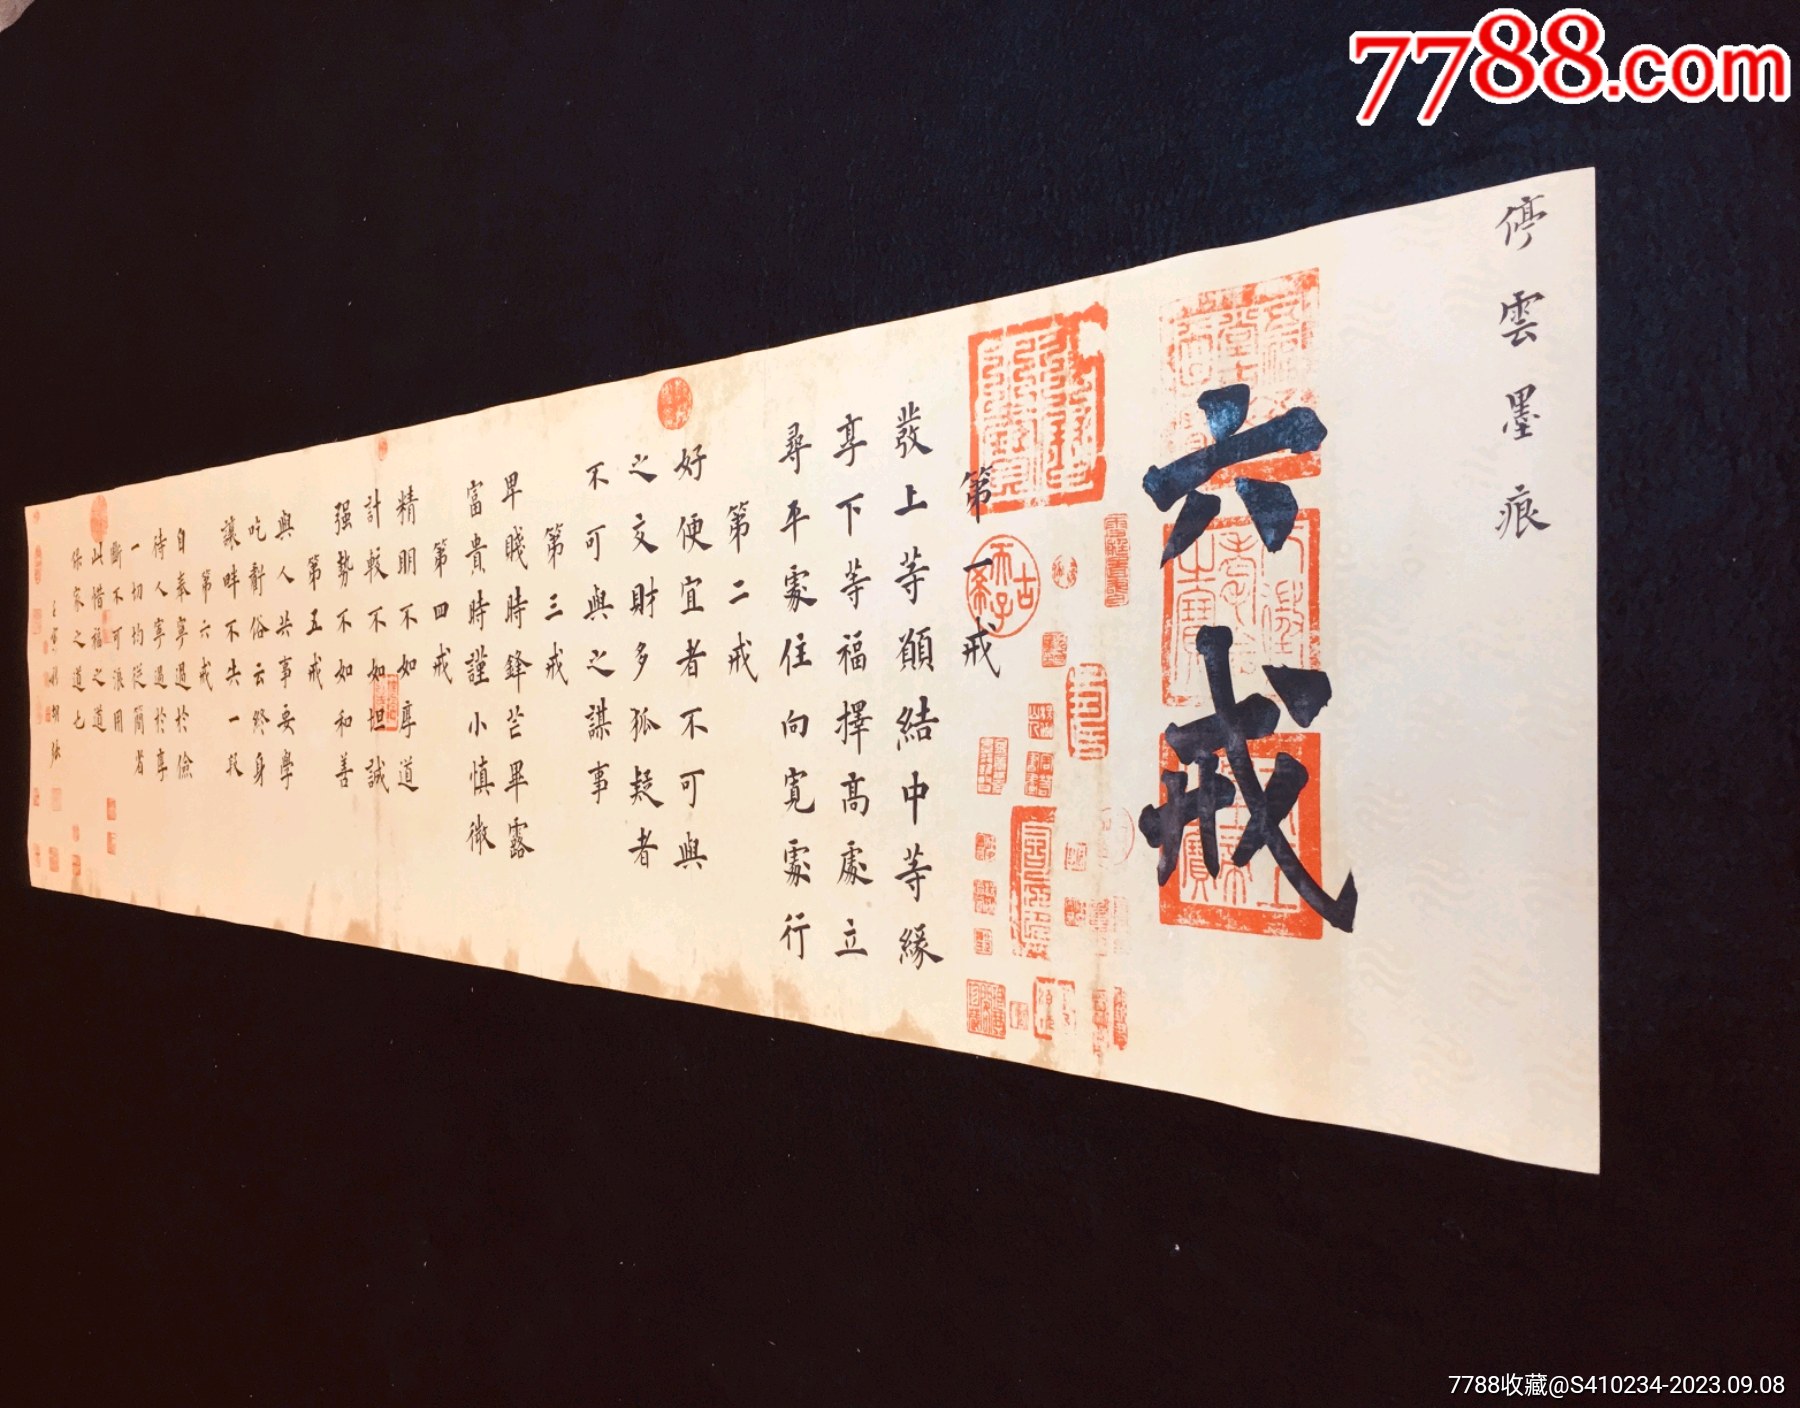 7788.com
停雲墨痕
六戒
第一戒
發上等願結中等緣
享下等福擇高處立
尋平處住向寬處行
第二戒
好便宜者不可與
之交財多狐疑者
不可與之謀事
第三戒
卑賤時鋒芒畢露
富貴時謹小慎微
第四戒
精明不如厚道
計較不如坦誠
强勢不如和善
第五戒
與人共事要學
吃虧俗云終身
讓畔不失一段
第六戒
自奉寧過於儉
待人寧過於厚
一切均從簡省
斷不可浪用
此惜福之道
保家之道也
7788收藏@S410234-2023.09.08